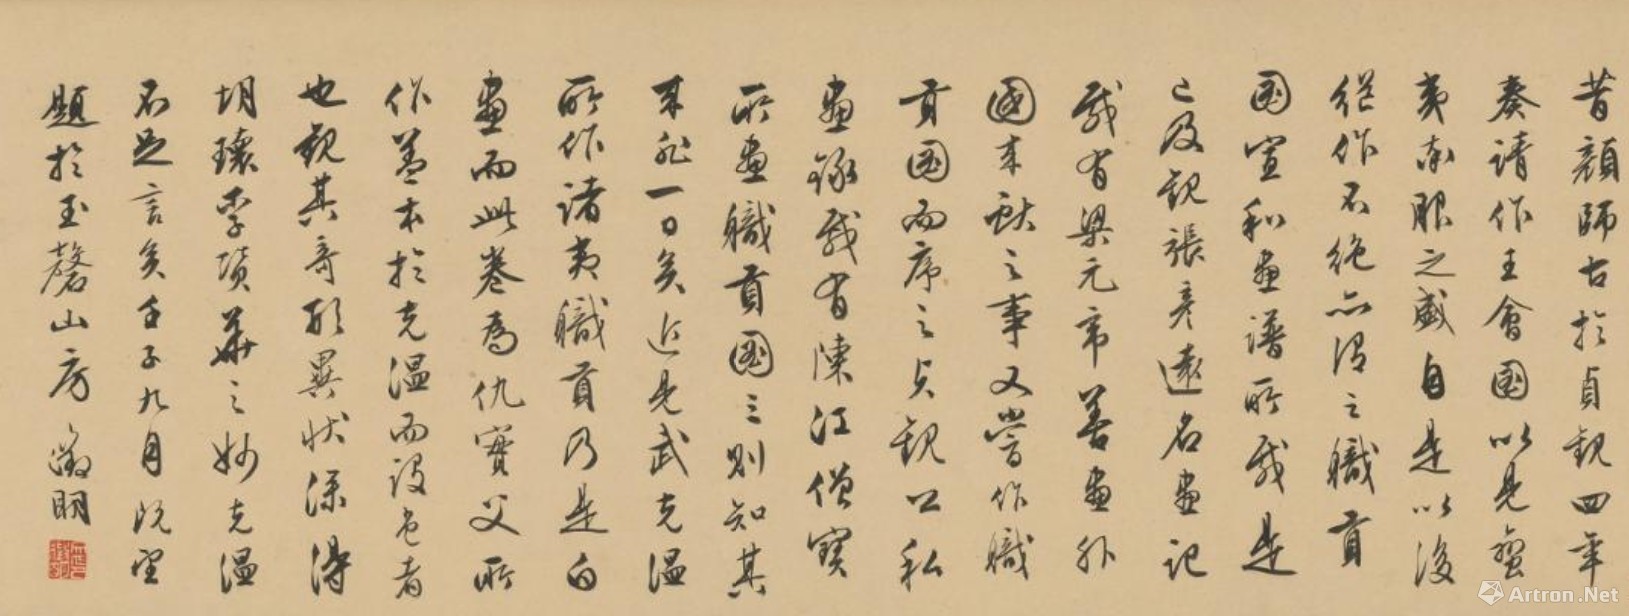 昔顔師古於貞観四年
奏請作王會國以見蠻
夷率服之盛自是以後
繼作不絶亦謂之職貢
國宣和畫譜所載是
已及觀張彦遠名畫記
載有梁元帝善畫外
國来獻之事又嘗作職
貢國而序之貞觀公私
畫錄載有陳江僧寶
所畫職貢國三則知其
来非一日矣近見武克温
所作諸夷職貢乃是白
畫而此卷為仇實父所
作蓋本於克温而設色者
也觀其奇形異状深得
胡瓌李贊華之妙克温
不足言矣壬子九月既望
題於玉磬山房 徵明
Artron.Net